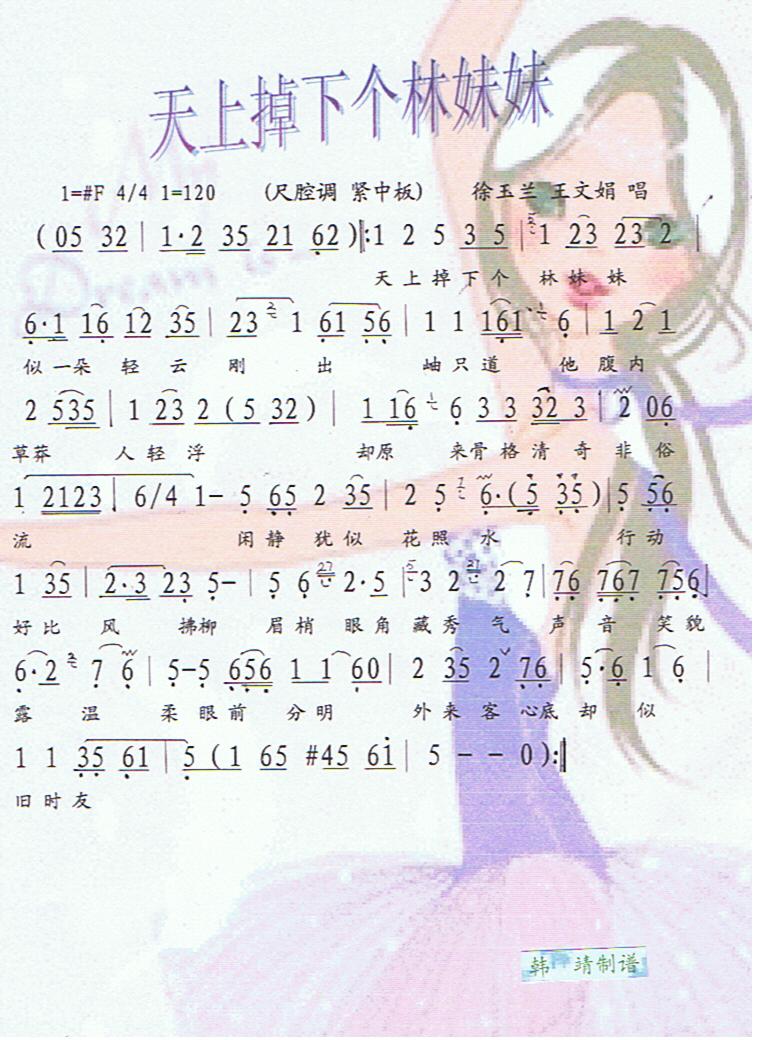 天上掉下个林妹妹
1=#F 4/4 1=120 (尺腔调 紧中板) 徐玉兰 王文娟 唱
(05 32 | 1·2 35 21 62)‖:1 2 5 3 5 | 1 23 23 2 |
天上掉下个 林妹妹
6·1 16 12 35 | 23 1 61 56 | 1 1 161 6 | 1 2 1
似一朵 轻云刚出 岫只道 他腹内
2 535 | 1 23 2 (5 32) | 1 16 6 3 3 32 3 | 2 06
草莽 人轻浮 却原 来骨格清奇非俗
1 2123 | 6/4 1- 5 65 2 35 | 2 5 6·(5 35) | 5 56
流 闲静犹似 花照水 行动
1 35 | 2·3 23 5- | 5 6 2·5 | 3 2 2 7 | 76 767 756 |
好比 风 拂柳 眉梢 眼角 藏秀 气 声音 笑貌
6·2 7 6 | 5-5 656 1 1 60 | 2 35 2 76 | 5·6 1 6 |
露 温 柔 眼前 分明 外来客 心底却 似
1 1 35 61 | 5 (1 65 #45 61 | 5 - - 0):‖
旧时友
韩 靖制谱